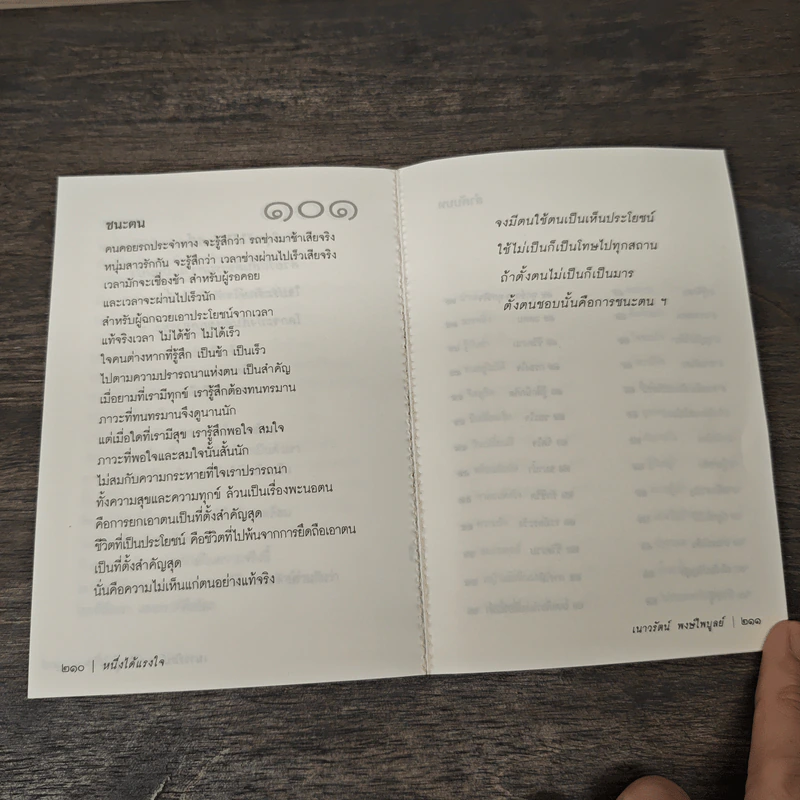 ชนะตน
๑๐๑
คนคอยรถประจำทาง จะรู้สึกว่า รถช่างมาช้าเสียจริง
หนุ่มสาวรักกัน จะรู้สึกว่า เวลาช่างผ่านไปเร็วเสียจริง
เวลามักจะเชื่องช้า สำหรับผู้รอคอย
และเวลาจะผ่านไปเร็วนัก
สำหรับผู้ฉกฉวยเอาประโยชน์จากเวลา
แท้จริงเวลา ไม่ได้ช้า ไม่ได้เร็ว
ใจคนต่างหากที่รู้สึก เป็นช้า เป็นเร็ว
ไปตามความปรารถนาแห่งตน เป็นสำคัญ
เมื่อยามที่เรามีทุกข์ เรารู้สึกต้องทนทรมาน
ภาวะที่ทนทรมานจึงดูนานนัก
แต่เมื่อใดที่เรามีสุข เรารู้สึกพอใจ สมใจ
ภาวะที่พอใจและสมใจนั้นสั้นนัก
ไม่สมกับความกระหายที่ใจเราปรารถนา
ทั้งความสุขและความทุกข์ ล้วนเป็นเรื่องพะนอตน
คือการยกเอาตนเป็นที่ตั้งสำคัญสุด
ชีวิตที่เป็นประโยชน์ คือชีวิตที่ไปพ้นจากการยึดถือเอาตน
เป็นที่ตั้งสำคัญสุด
นั่นคือความไม่เห็นแก่ตนอย่างแท้จริง
๒๑๐ | หนึ่งได้แรงใจ
จงมีตนใช้ตนเป็นเห็นประโยชน์
ใช้ไม่เป็นก็เป็นโทษไปทุกสถาน
ถ้าตั้งตนไม่เป็นก็เป็นมาร
ตั้งตนชอบนั้นคือการชนะตน ฯ
เนาวรัตน์ พงษ์ไพบูลย์ | ๒๑๑